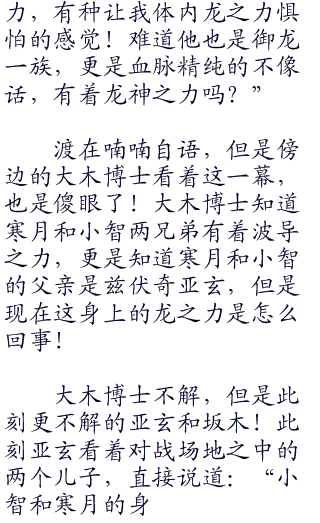 力，有种让我体内龙之力惧
怕的感觉！难道他也是御龙
一族，更是血脉精纯的不像
话，有着龙神之力吗？”
渡在喃喃自语，但是傍
边的大木博士看着这一幕，
也是傻眼了！大木博士知道
寒月和小智两兄弟有着波导
之力，更是知道寒月和小智
的父亲是兹伏奇亚玄，但是
现在这身上的龙之力是怎么
回事！
大木博士不解，但是此
刻更不解的亚玄和坂木！此
刻亚玄看着对战场地之中的
两个儿子，直接说道：“小
智和寒月的身